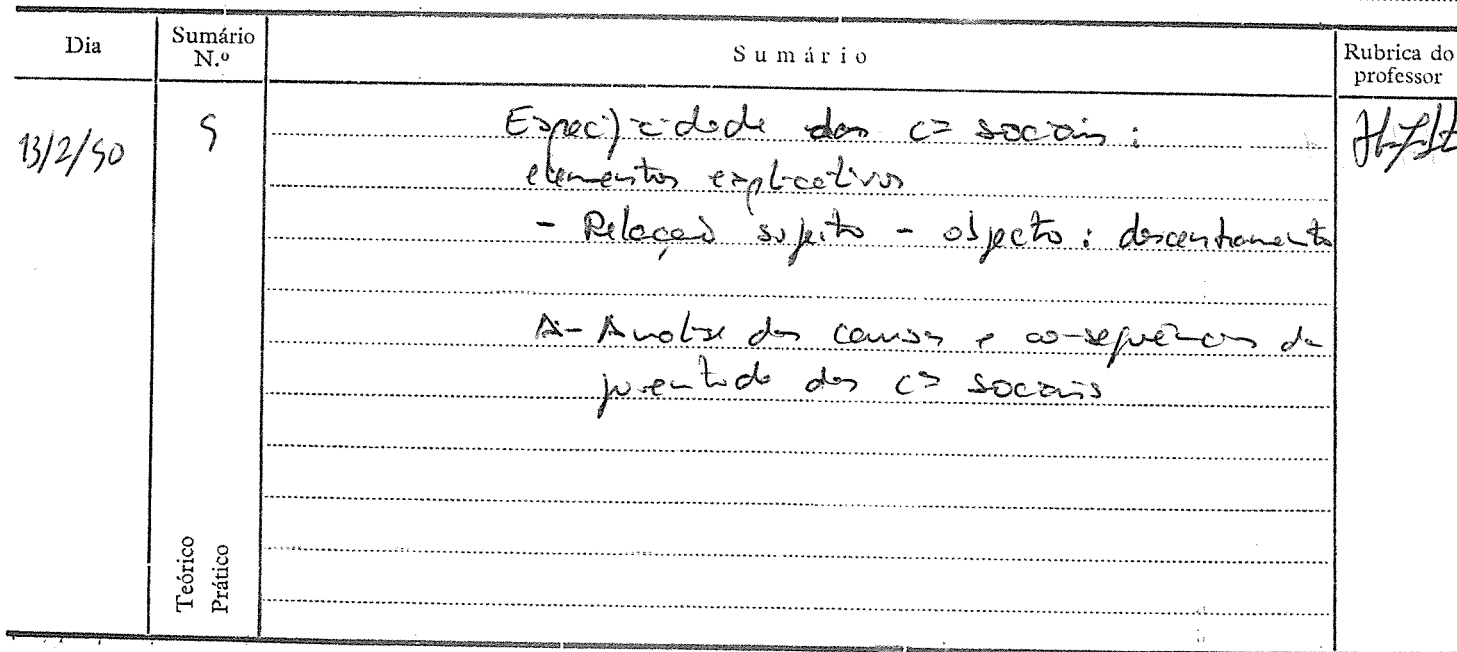 Dia
Sumário N.º
Sumário
Rubrica do professor
13/2/90
9
Especificidade das cªs sociais :
elementos explicativos
- Relação sujeito - objecto : descentramento
A - Analise das causas e consequências da
juventude das cªs sociais
Teórico
Prático